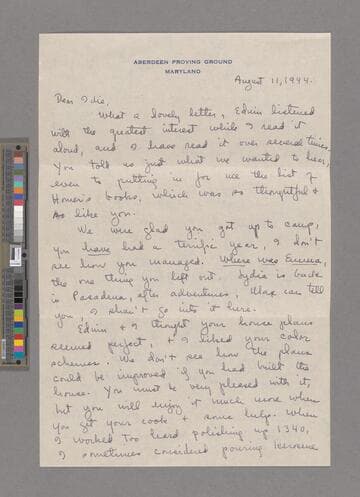 ABERDEEN PROVING GROUND
MARYLAND
August 11, 1944.
Dear Idie,
What a lovely letter, Edwin listened
with the greatest interest while I read it
aloud, and I have read it over several times.
You told us just what we wanted to hear,
even to putting in for me the list of
Homer's books, which was so thoughtful &
so like you.
We were glad you got up to camp,
you have had a terrific year, I don't
see how you managed. Where was Emma,
the one thing you left out. Lydia is back
in Pasadena, after adventures, Max can tell
you, I shan't go into it here.
Edwin & I thought your house plans
seemed perfect, & I liked your color
schemes. We don't see how the plans
could be improved if you had built the
house. You must be very pleased with it,
but you will enjoy it much more when
you get your cook & some help. When
I worked too hard polishing up 1340,
I sometimes considered pouring kerosene